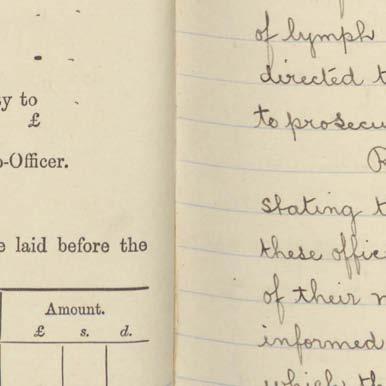 to
£
-Officer.
laid before the
Amount.
£ s. d.
of lymph
directed
to
stating
these
of their
informed
which